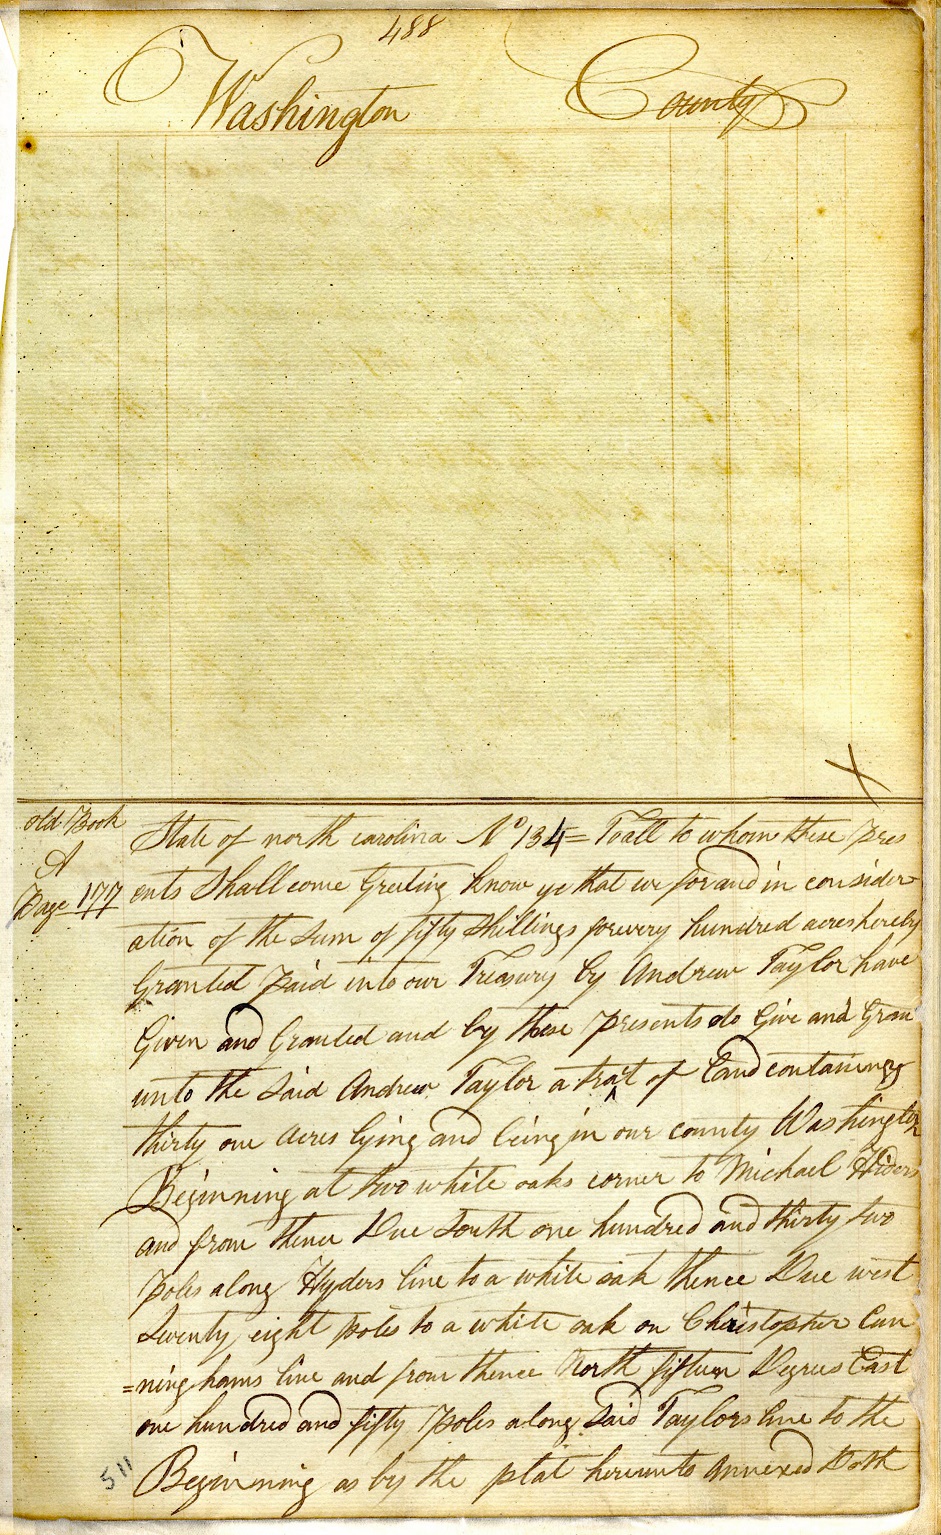 488
Washington County
old Book
A
Page 177
State of north carolina No 134= To all to whom these Pres
ents Shall come Greeting know ye that we for and in consider
ation of the Sum of fifty Shillings forevery hundred acres hereby
Granted Paid into our Treasury by Andrew Taylor have
Given and Granted and by these Presents do Give and Gran
unto the Said Andrew Taylor a tract of Land containing
thirty one Acres lying and being in our county Washington
Beginning at two white oaks corner to Michael Hiders
and from thence Due South one hundred and thirty two
Poles along Hyders line to a white oak thence Due west
twenty eight poles to a white oak on Christopher Cun
=ninghams line and from thence North fifteen Degrees East
one hundred and fifty Poles along Said Taylors line to the
Beginning as by the plat hereunto Annexed Doth
511